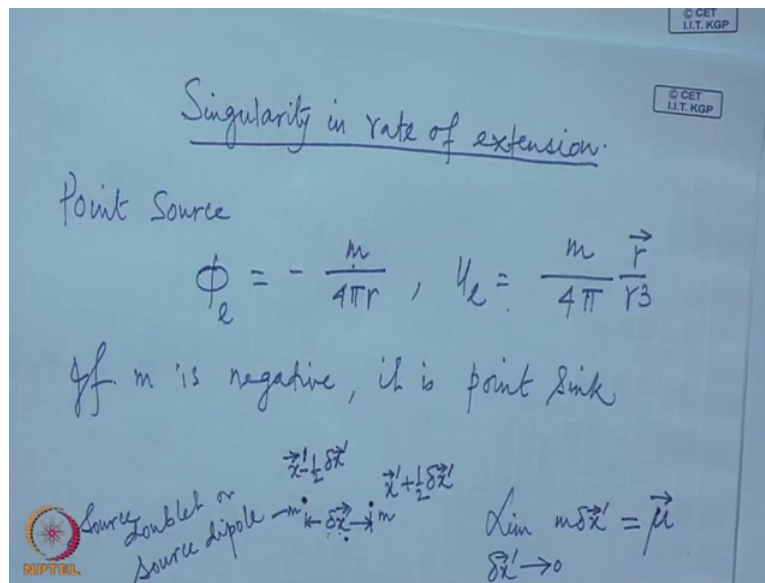 © CET
I.I.T. KGP
© CET
I.I.T. KGP
Singularity in rate of extension.
Point Source
ϕ_e = - m / 4πr , u_e = m / 4π r⃗ / r3
If m is negative, it is point sink
x⃗' - ½ δx⃗'
x⃗' + ½ δx⃗'
Source doublet or
source dipole
-m ← δx⃗' → m
Lim m δx⃗' = μ⃗
δx⃗' → 0
NPTEL